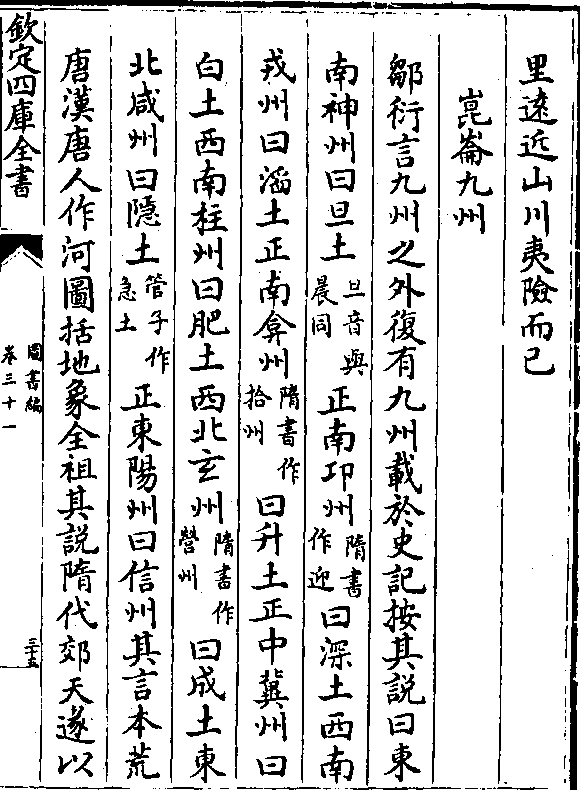 里遠近山川夷險而已
崑崙九州
鄒衍言九州之外復有九州載於史記按其說曰東
南神州曰旦土旦音與晨同正南卭州隋書作迎曰深土西南
戎州曰滔土正南弇州隋書作拾州曰升土正中冀州曰
白土西南柱州曰肥土西北玄州隋書作營州曰成土東
北咸州曰隱土管子作急土正東陽州曰信州其言本荒
唐漢唐人作河圖括地象全祖其說隋代郊天遂以
欽定四庫全書
圖書編
卷三十一
三十五